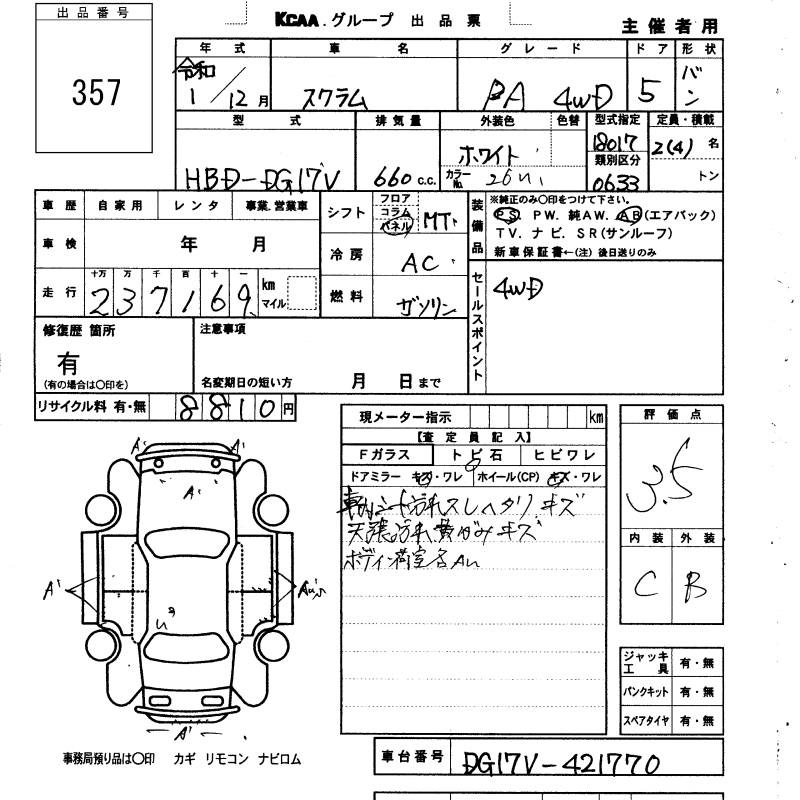 出品番号
357
KCAA.グループ 出品票
主催者用
年式 車名 グレード ドア 形状
令和 1/12月 スクラム PA 4WD 5 バン
型式 排気量 外装色 色替 型式指定 定員・積載
HBD-DG17V 660 c.c. ホワイト 18017 2(4) 名
カラーNo. 26U 類別区分 0633 トン
車歴 自家用 レンタ 事業.営業車
車検 年 月
走行 十万 万 千 百 十 一
2 3 7 1 6 9 km マイル
シフト フロア コラム パネル MT
冷房 AC
燃料 ガソリン
装備品 ※純正のみ〇印をつけて下さい。
PS. PW. 純AW. AB(エアバック)
TV. ナビ. SR(サンルーフ)
新車保証書←(注) 後日送りのみ
セールスポイント
4WD
修復歴 箇所
有
(有の場合は〇印を)
注意事項
名変期日の短い方 月 日まで
リサイクル料 有・無 8810円
現メーター指示 km
【査定員記入】
Fガラス トビ石 ヒビワレ
ドアミラー キズ・ワレ ホイール(CP) キズ・ワレ
シート汚れスレヘタリ キズ
天張汚れ キズ
ボディ荷室各AU
評価点
3.5
内装 外装
C B
ジャッキ工具 有・無
パンクキット 有・無
スペアタイヤ 有・無
A' A'
A'
A'
A'
事務局預り品は〇印 カギ リモコン ナビロム
車台番号 DG17V-421770